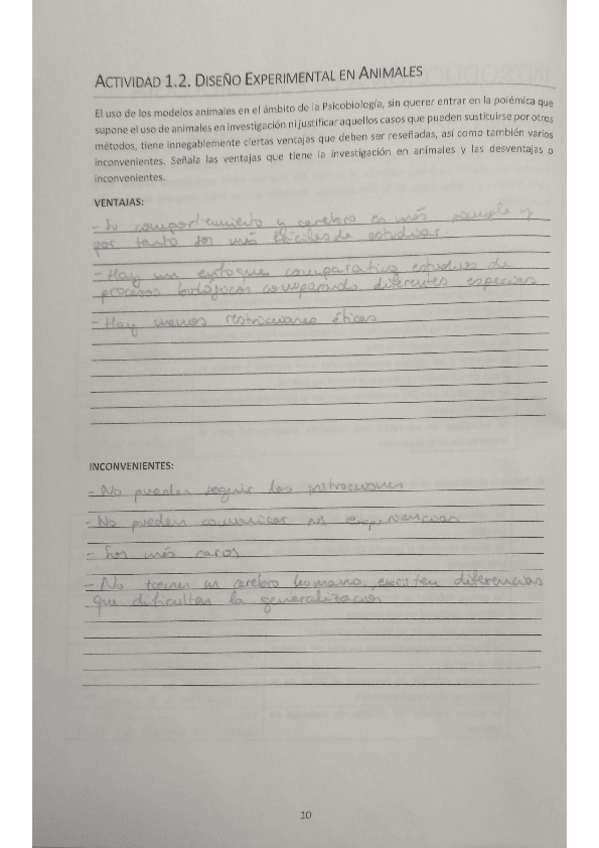 ACTIVIDAD 1.2. DISEÑO EXPERIMENTAL EN ANIMALES
El uso de los modelos animales en el ámbito de la Psicobiología, sin querer entrar en la polémica que
supone el uso de animales en investigación ni justificar aquellos casos que pueden sustituirse por otros
métodos, tiene innegablemente ciertas ventajas que deben ser reseñadas, así como también varios
inconvenientes. Señala las ventajas que tiene la investigación en animales y las desventajas o
inconvenientes.
VENTAJAS:
- Su comportamiento y cerebro es más simple y
por tanto son más fáciles de estudiar.
- Hay un enfoque comparativo estudios de
procesos biológicos comparando diferentes especies
- Hay menos restricciones éticas
INCONVENIENTES:
- No pueden seguir las instrucciones
- No pueden comunicar sus experiencias
- Son más caros
- No tienen un cerebro humano, existen diferencias
que dificultan la generalización
10